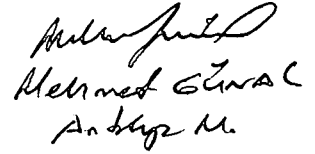 Mehmet GÜNAL
Antalya M.